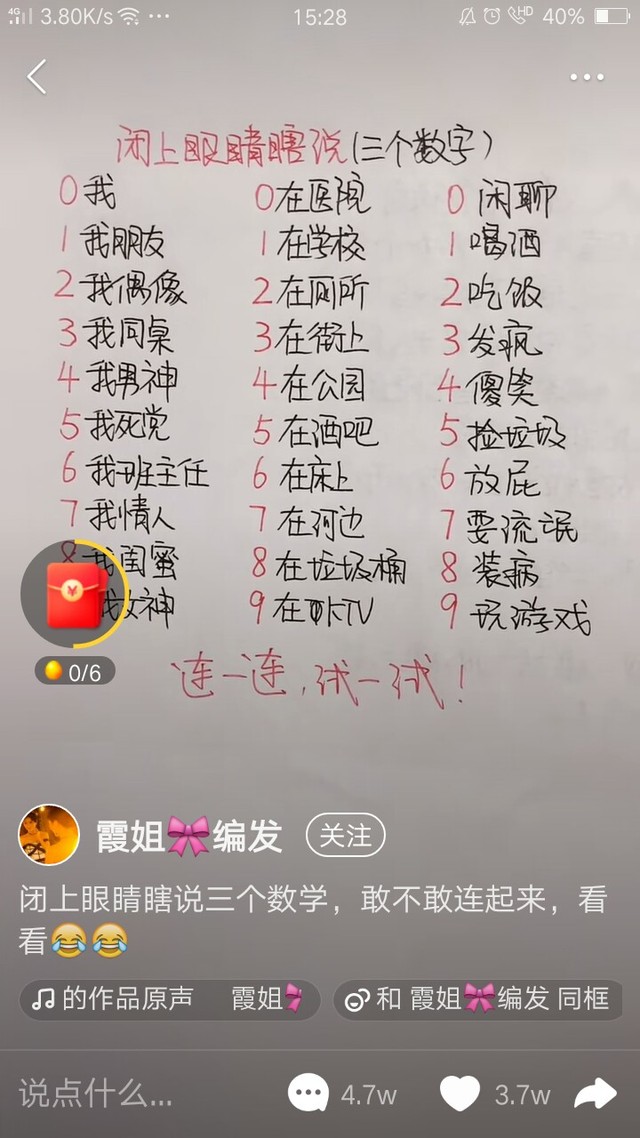 4G 3.80K/s 15:28 HD 40%
闭上眼睛瞎说(三个数字)
0我 0在医院 0闲聊
1我朋友 1在学校 1喝酒
2我偶像 2在厕所 2吃饭
3我同桌 3在街上 3发疯
4我男神 4在公园 4傻笑
5我死党 5在酒吧 5捡垃圾
6我班主任 6在床上 6放屁
7我情人 7在河边 7耍流氓
8我闺蜜 8在垃圾桶 8装病
我女神 9在KTV 9玩游戏
连一连,试一试!
0/6
霞姐 编发 关注
闭上眼睛瞎说三个数学，敢不敢连起来，看
看
的作品原声 霞姐 和 霞姐 编发 同框
说点什么... 4.7w 3.7w